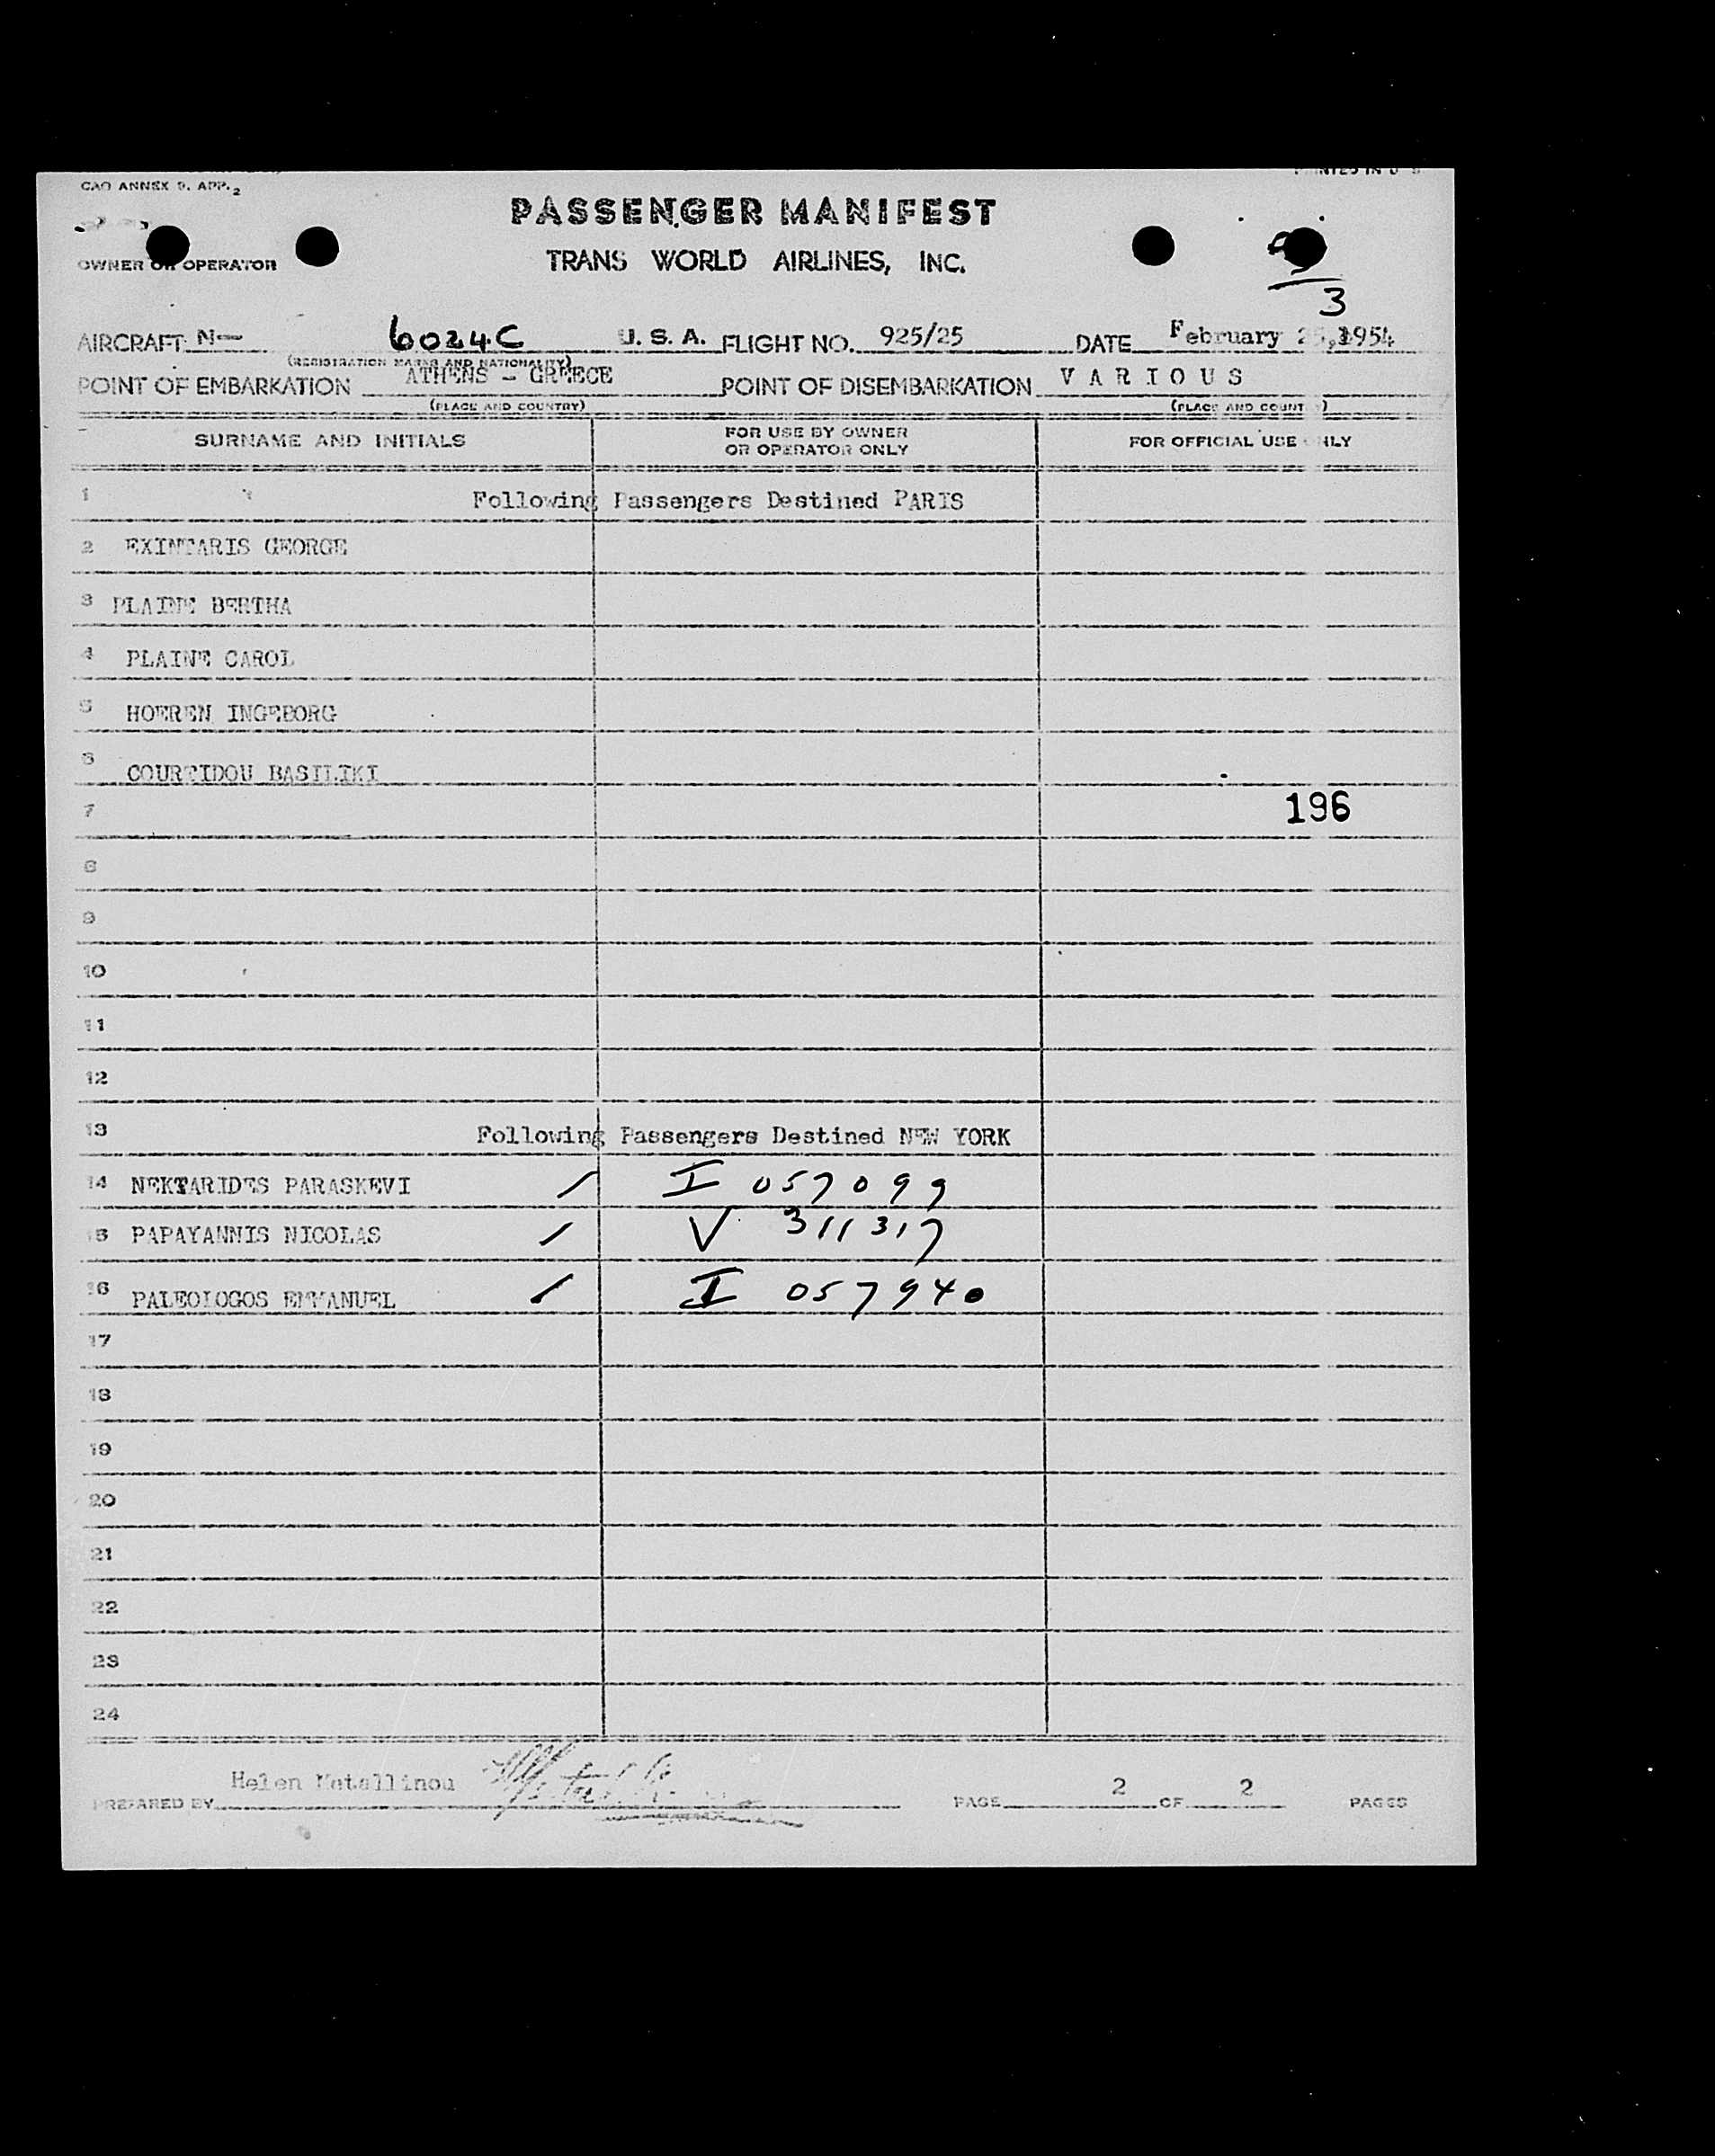 CAO ANNEX 9. APP. 2
PASSENGER MANIFEST
OWNER OR OPERATOR
TRANS WORLD AIRLINES, INC.
3
AIRCRAFT N— 6024C U. S. A. FLIGHT NO. 925/25 DATE February 25, 1954
(REGISTRATION MARKS AND NATIONALITY)
POINT OF EMBARKATION ATHENS - GREECE POINT OF DISEMBARKATION VARIOUS
(PLACE AND COUNTRY) (PLACE AND COUNT )
SURNAME AND INITIALS FOR USE BY OWNER OR OPERATOR ONLY FOR OFFICIAL USE ONLY
1 Following Passengers Destined PARIS
2 EXINTARIS GEORGE
3 PLAINE BERTHA
4 PLAINE CAROL
5 HOEREN INGEBORG
6 COURTIDOU BASILIKI
7 196
8
9
10
11
12
13 Following Passengers Destined NEW YORK
14 NEKTARIDES PARASKEVI / I 057099
15 PAPAYANNIS NICOLAS / V 311317
16 PALEOLOGOS EMMANUEL / I 057940
17
18
19
20
21
22
23
24
Helen Metallinou
PREPARED BY PAGE 2 OF 2 PAGES